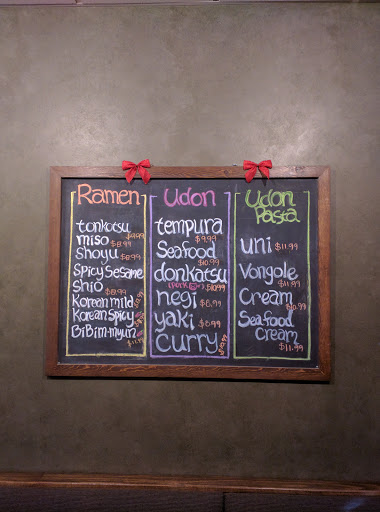 Ramen
tonkotsu $9.99
miso $8.99
shoyu $8.99
Spicy Sesame
Shio $8.99
Korean mild
Korean Spicy
BiBim-myun $11.99
Udon
tempura
$9.99
Seafood
$10.99
donkatsu
(pork) $10.99
negi $8.99
yaki $8.99
Curry
Udon
Pasta
uni $11.99
Vongole
$11.99
Cream
$10.99
Seafood
Cream
$11.99